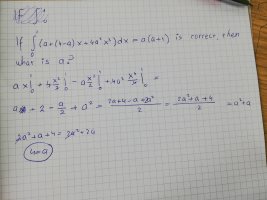 If ∫₀¹ (a+(4-a)x+4a²x³)dx = a(a+1) is correct, then
what is a?
ax|₀¹ + 4 x²/2|₀¹ - a x²/2|₀¹ + 4a² x⁴/4|₀¹ =
a + 2 - a/2 + a² = (2a+4-a+2a²)/2 = (2a²+a+4)/2 = a²+a
2a²+a+4 = 2a²+2a
4=a